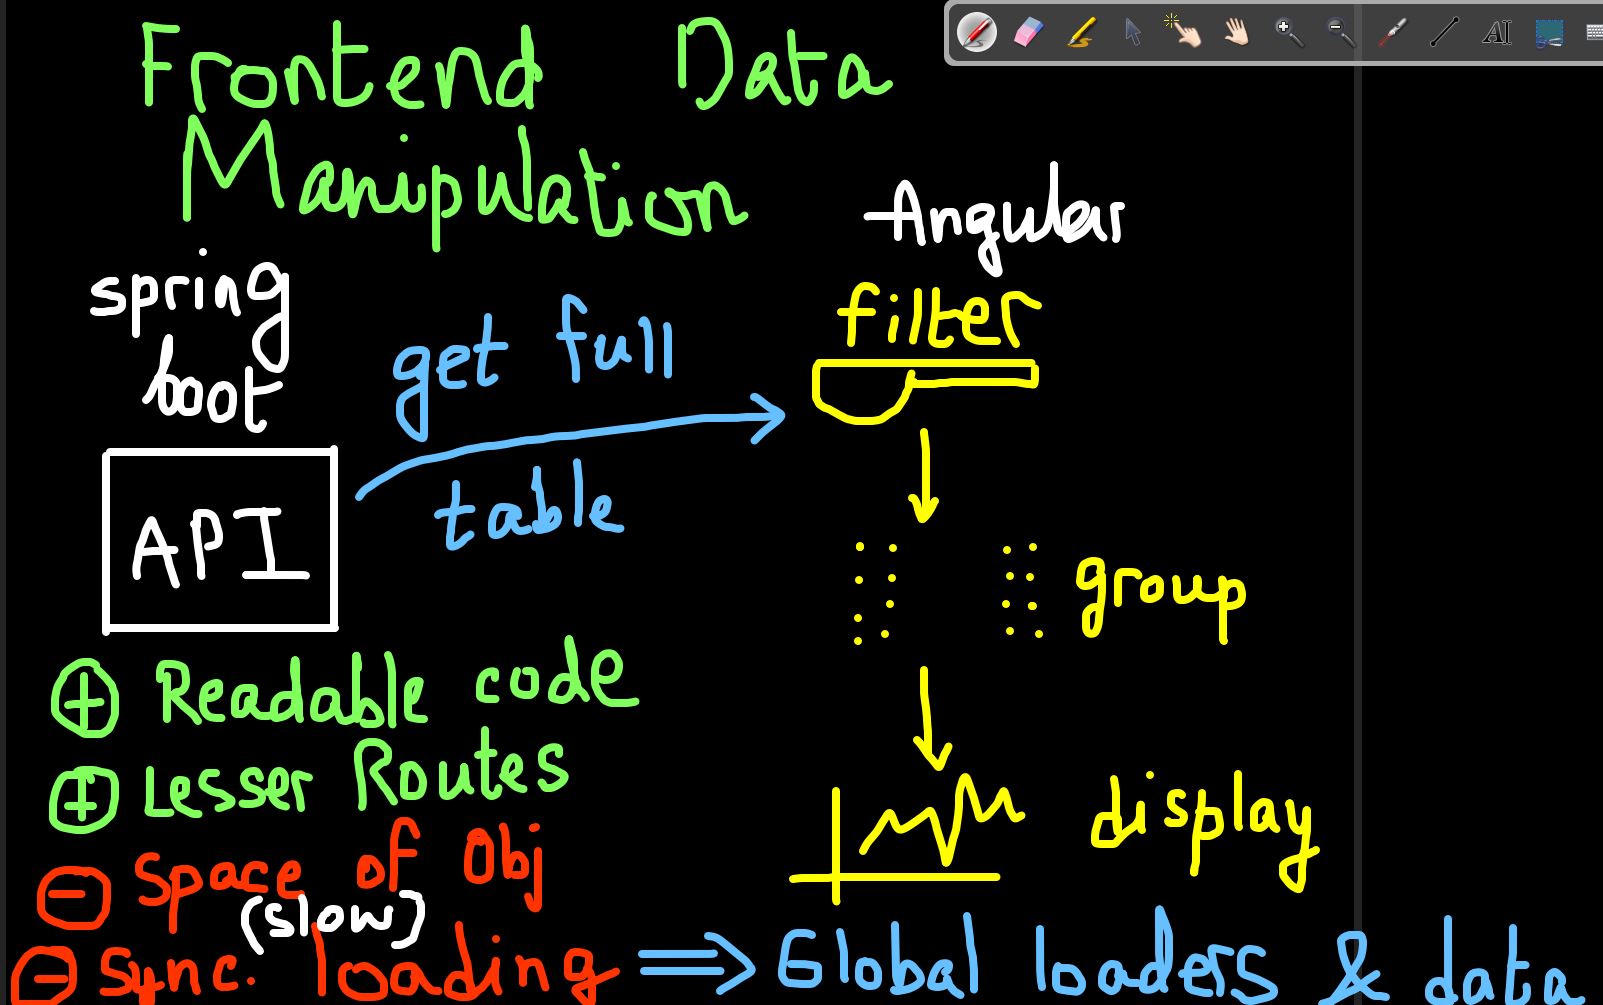 Frontend Data
Manipulation
Angular
spring
boot
API
get full
table
filter
group
display
+ Readable code
+ Lesser Routes
- Space of Obj
(slow)
- Sync. loading ⇒ Global loaders & data
AI